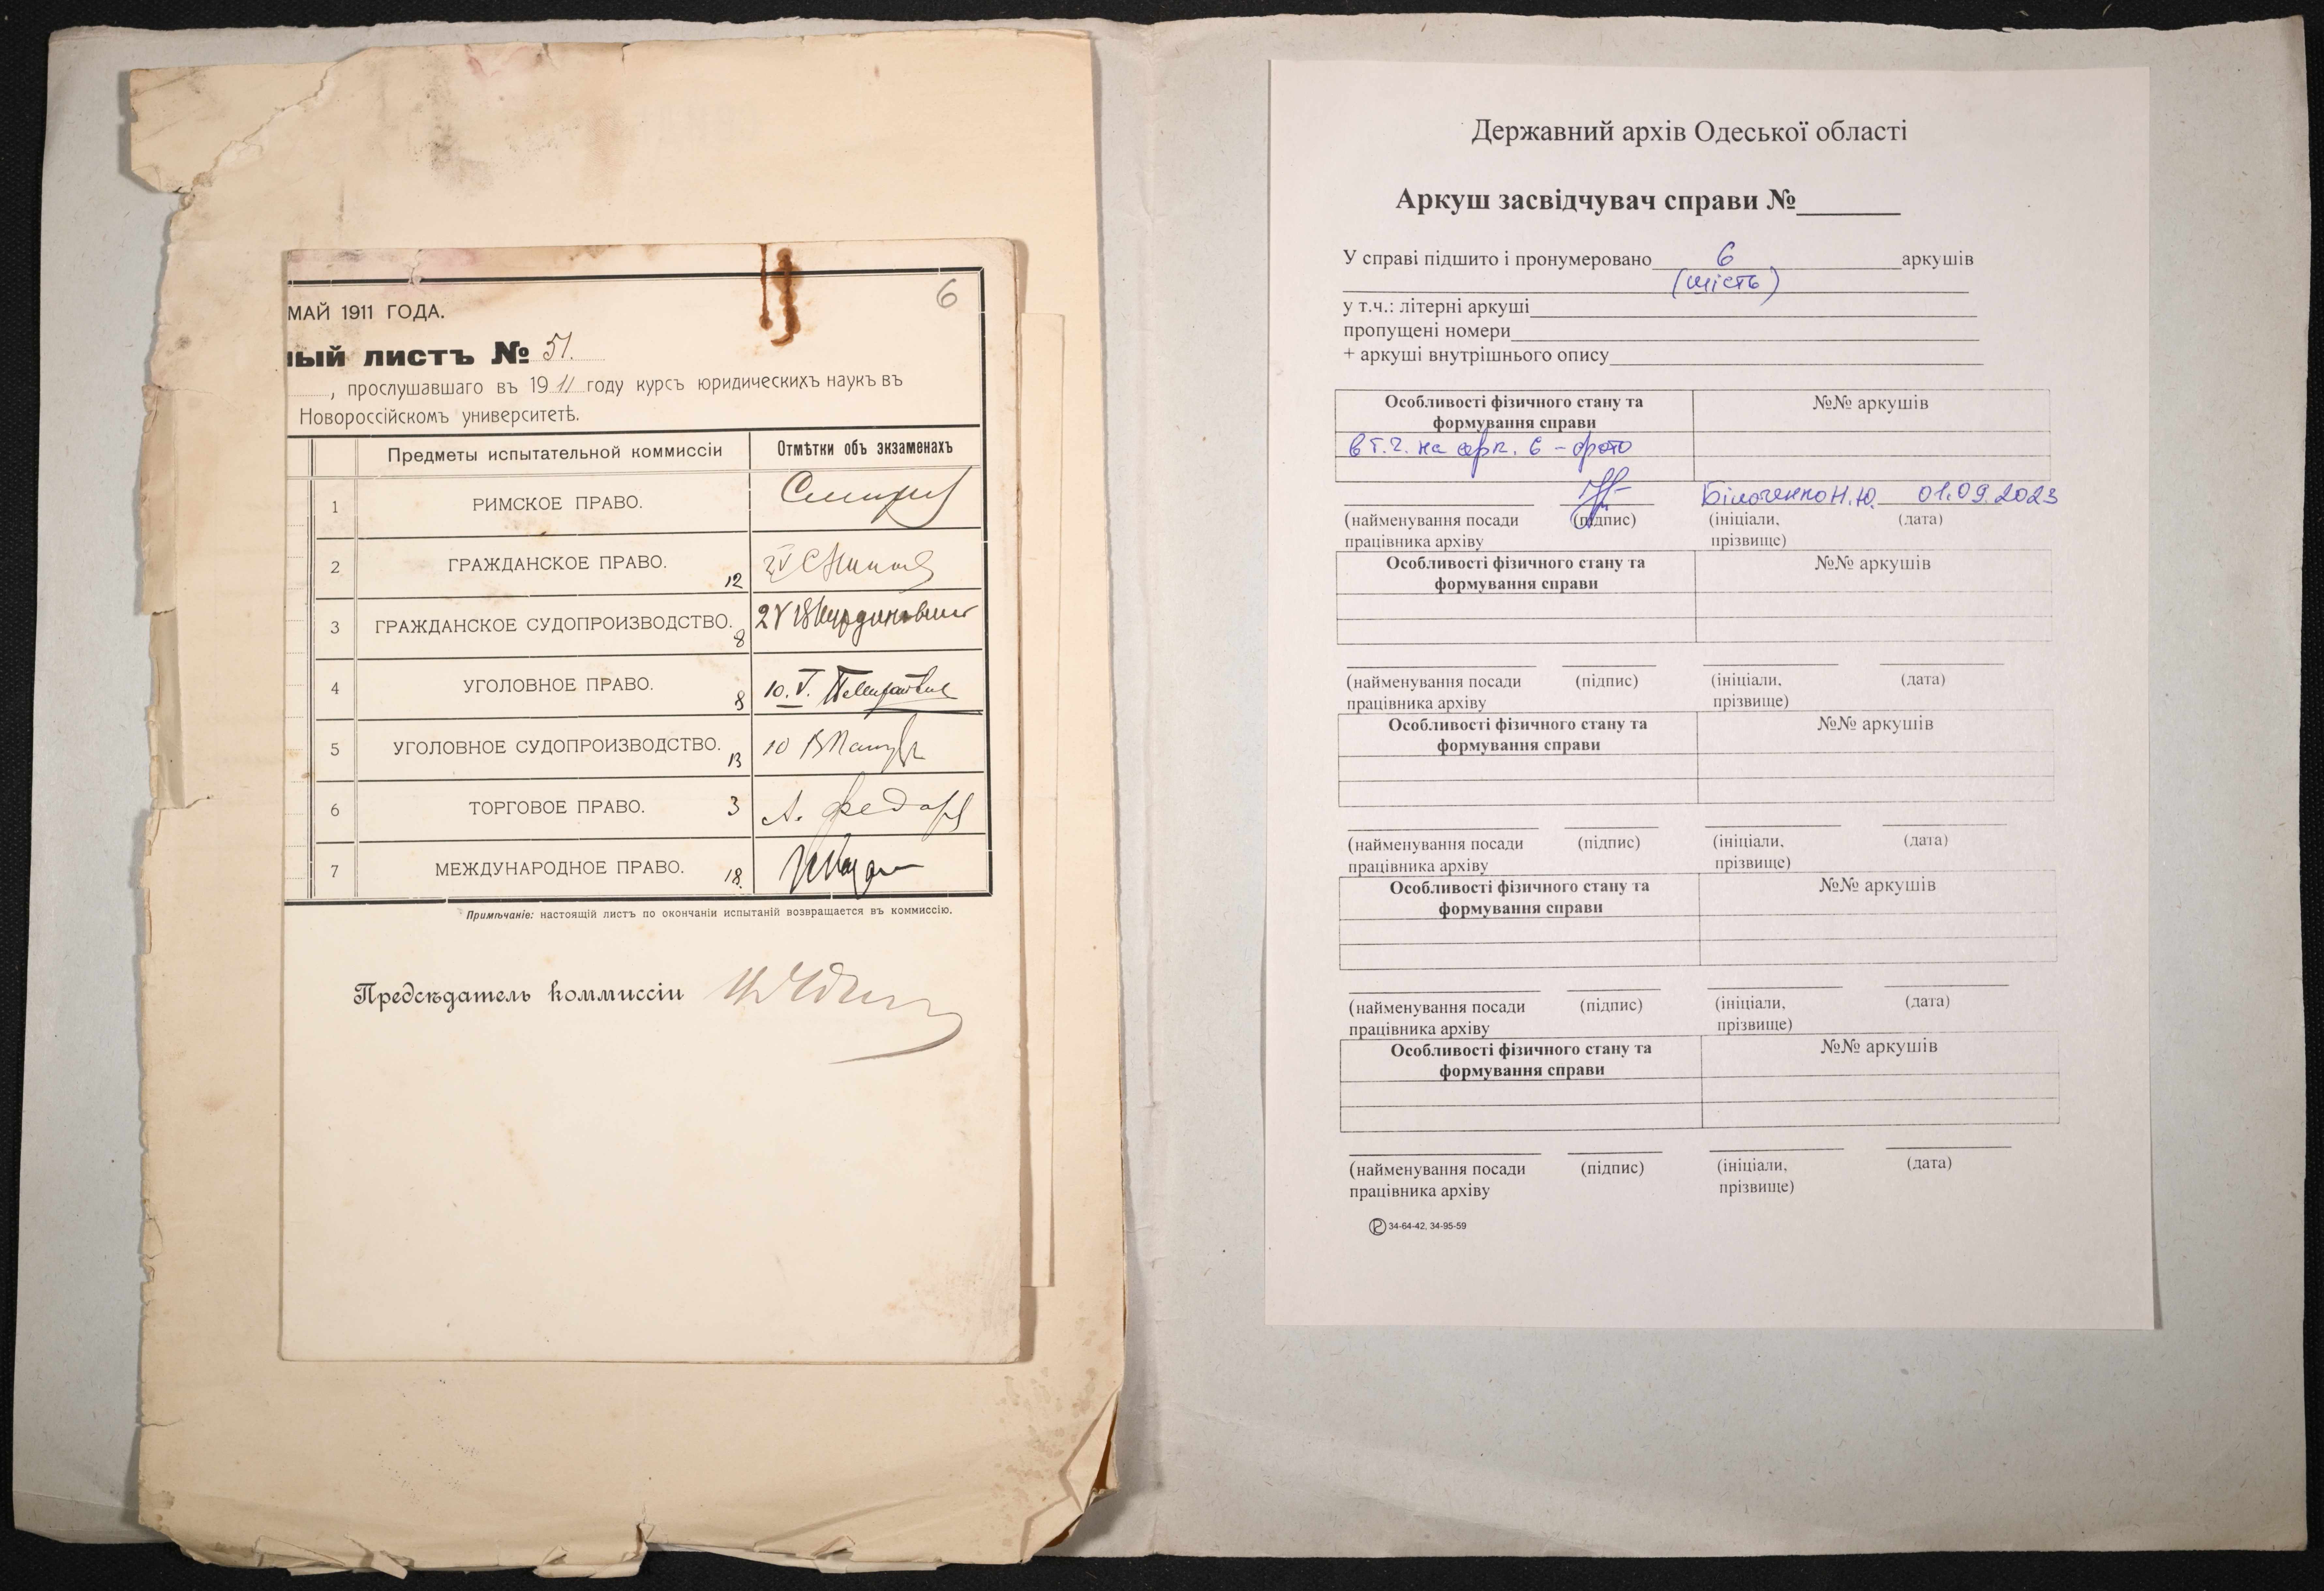 6
МАЙ 1911 ГОДА.
ный листъ № 51.
, прослушавшаго въ 1911 году курсъ юридическихъ наукъ въ
Новороссійскомъ университетѣ.
Предметы испытательной коммиссіи Отмѣтки объ экзаменахъ
1 РИМСКОЕ ПРАВО.
2 ГРАЖДАНСКОЕ ПРАВО. 12
3 ГРАЖДАНСКОЕ СУДОПРОИЗВОДСТВО. 8 2 V
4 УГОЛОВНОЕ ПРАВО. 8 10. V.
5 УГОЛОВНОЕ СУДОПРОИЗВОДСТВО. 13 10
6 ТОРГОВОЕ ПРАВО. 3 А.
7 МЕЖДУНАРОДНОЕ ПРАВО. 18.
Примѣчаніе: настоящій листъ по окончаніи испытаній возвращается въ коммиссію.
Предсѣдатель коммиссіи
Державний архів Одеської області
Аркуш засвідчувач справи №
У справі підшито і пронумеровано 6 аркушів
(шість)
у т.ч.: літерні аркуші
пропущені номери
+ аркуші внутрішнього опису
Особливості фізичного стану та №№ аркушів
формування справи
в т.ч. на арк. 6 - фото
Білоченко Н.Ю. 01.09.2023
(найменування посади (підпис) (ініціали, (дата)
працівника архіву прізвище)
Особливості фізичного стану та №№ аркушів
формування справи
(найменування посади (підпис) (ініціали, (дата)
працівника архіву прізвище)
Особливості фізичного стану та №№ аркушів
формування справи
(найменування посади (підпис) (ініціали, (дата)
працівника архіву прізвище)
Особливості фізичного стану та №№ аркушів
формування справи
(найменування посади (підпис) (ініціали, (дата)
працівника архіву прізвище)
Особливості фізичного стану та №№ аркушів
формування справи
(найменування посади (підпис) (ініціали, (дата)
працівника архіву прізвище)
34-64-42, 34-95-59